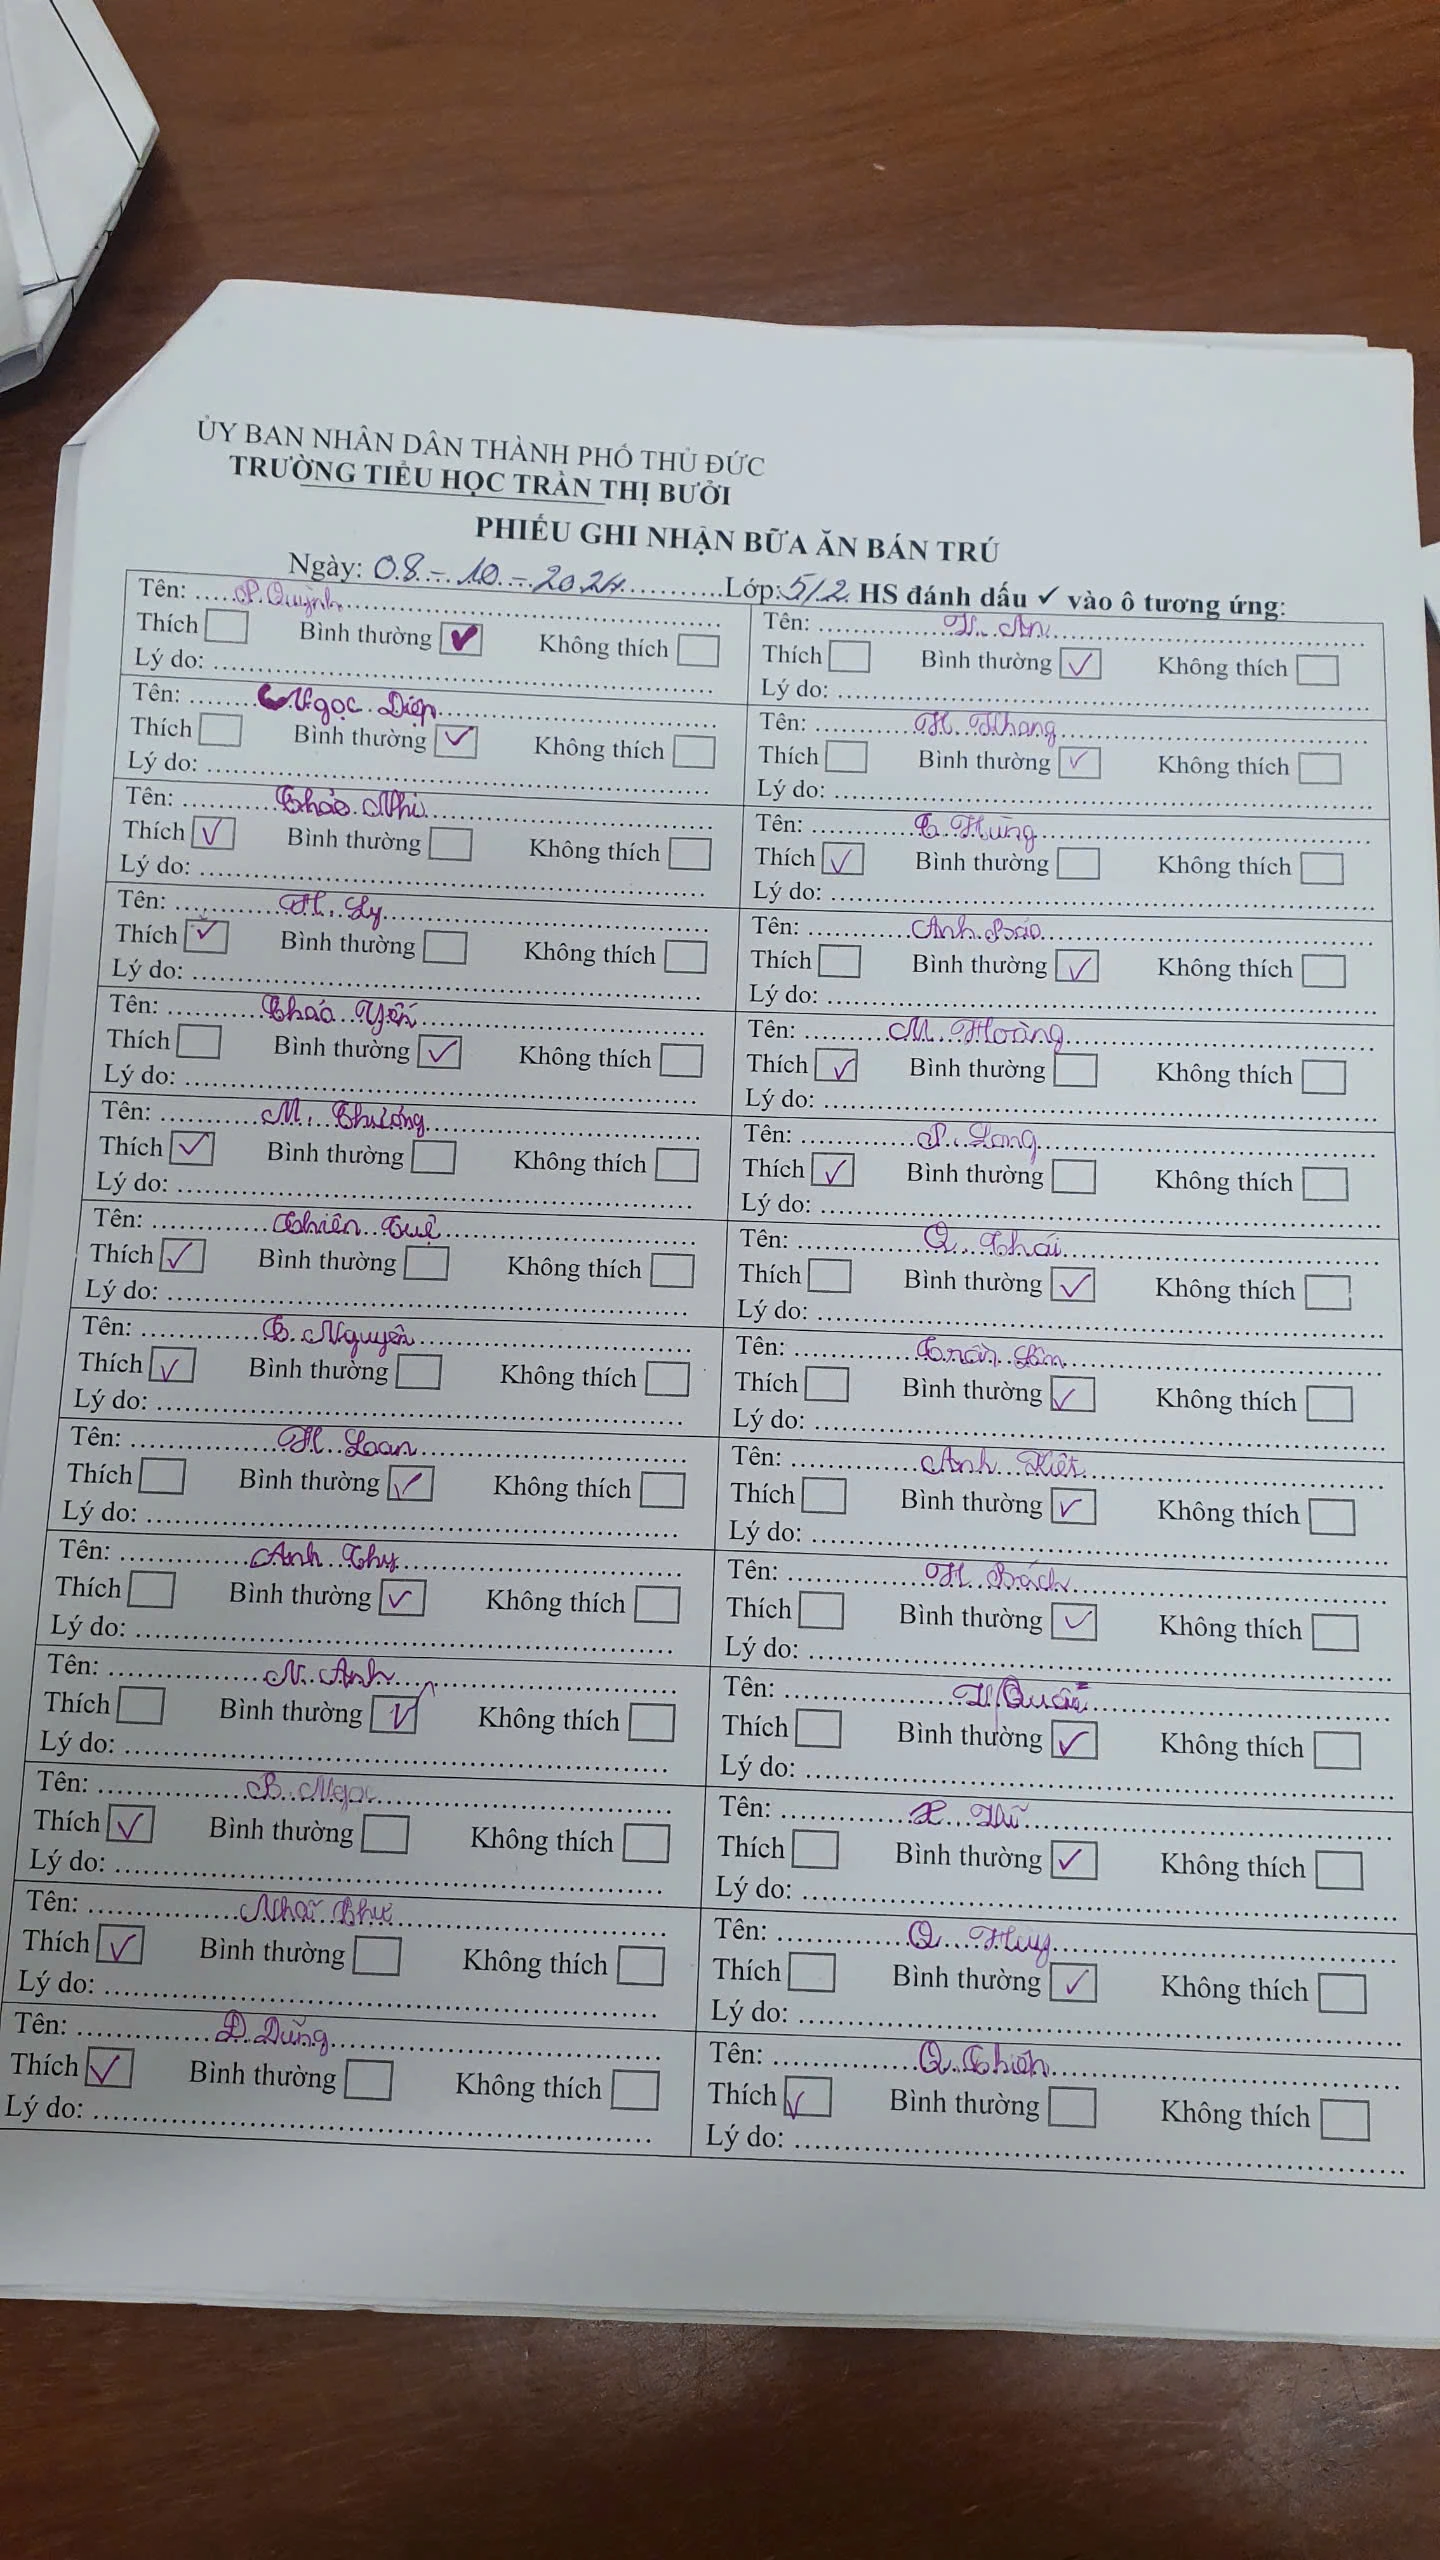 ỦY BAN NHÂN DÂN THÀNH PHỐ THỦ ĐỨC
TRƯỜNG TIỂU HỌC TRẦN THỊ BƯỞI
PHIẾU GHI NHẬN BỮA ĂN BÁN TRÚ
Ngày: 08-10-2024 Lớp: 5/2 HS đánh dấu ✓ vào ô tương ứng:
Tên: P. Quỳnh
Thích ☐ Bình thường ✓ Không thích ☐
Lý do:
Tên: H. An
Thích ☐ Bình thường ✓ Không thích ☐
Lý do:
Tên: Ngọc Diệp
Thích ☐ Bình thường ✓ Không thích ☐
Lý do:
Tên: H. Khang
Thích ☐ Bình thường ✓ Không thích ☐
Lý do:
Tên: Thảo Nhi
Thích ✓ Bình thường ☐ Không thích ☐
Lý do:
Tên: T. Hùng
Thích ✓ Bình thường ☐ Không thích ☐
Lý do:
Tên: H. Ly
Thích ✓ Bình thường ☐ Không thích ☐
Lý do:
Tên: Anh Bảo
Thích ☐ Bình thường ✓ Không thích ☐
Lý do:
Tên: Thảo Yến
Thích ☐ Bình thường ✓ Không thích ☐
Lý do:
Tên: M. Hoàng
Thích ✓ Bình thường ☐ Không thích ☐
Lý do:
Tên: M. Thương
Thích ✓ Bình thường ☐ Không thích ☐
Lý do:
Tên: P. Long
Thích ✓ Bình thường ☐ Không thích ☐
Lý do:
Tên: Thiên Tuệ
Thích ✓ Bình thường ☐ Không thích ☐
Lý do:
Tên: Q. Thái
Thích ☐ Bình thường ✓ Không thích ☐
Lý do:
Tên: T. Nguyên
Thích ✓ Bình thường ☐ Không thích ☐
Lý do:
Tên: Trần Lâm
Thích ☐ Bình thường ✓ Không thích ☐
Lý do:
Tên: H. Loan
Thích ☐ Bình thường ✓ Không thích ☐
Lý do:
Tên: Anh Kiệt
Thích ☐ Bình thường ✓ Không thích ☐
Lý do:
Tên: Anh Thy
Thích ☐ Bình thường ✓ Không thích ☐
Lý do:
Tên: H. Bách
Thích ☐ Bình thường ✓ Không thích ☐
Lý do:
Tên: N. Anh
Thích ☐ Bình thường ✓ Không thích ☐
Lý do:
Tên: Quân
Thích ☐ Bình thường ✓ Không thích ☐
Lý do:
Tên: B. Ngọc
Thích ✓ Bình thường ☐ Không thích ☐
Lý do:
Tên:
Thích ☐ Bình thường ✓ Không thích ☐
Lý do:
Tên: Nhã Thư
Thích ✓ Bình thường ☐ Không thích ☐
Lý do:
Tên: Q. Huy
Thích ☐ Bình thường ✓ Không thích ☐
Lý do:
Tên: D. Dũng
Thích ✓ Bình thường ☐ Không thích ☐
Lý do:
Tên: Q. Thiên
Thích ✓ Bình thường ☐ Không thích ☐
Lý do: